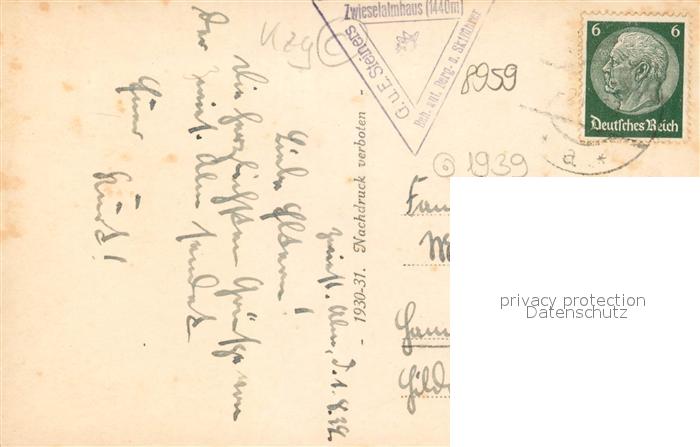 Zwieselalmhaus (1440m)
G. u. E. Steiners
Beh. aut. Berg- u. Skiführer
Kzg
8959
6 6
Deutsches Reich
a *
© 1939
- 1930-31. Nachdruck verboten -
Liebe Eltern!
Die herzlichsten Grüße von
der Zwies. Alm sendet
Euer
Kurt!
Fam
Ham
Hilde
privacy protection
Datenschutz